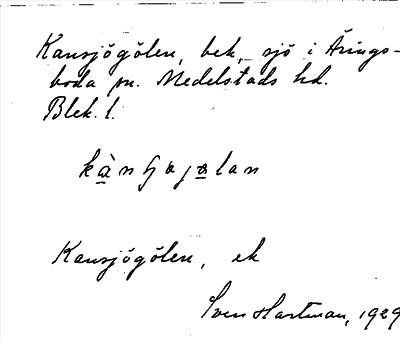 Kansjögölen, bek, sjö i Årings-
boda sn. Medelstads hd.
Blek. l.
Kansjögölen, ek
Sven Hartman, 1929